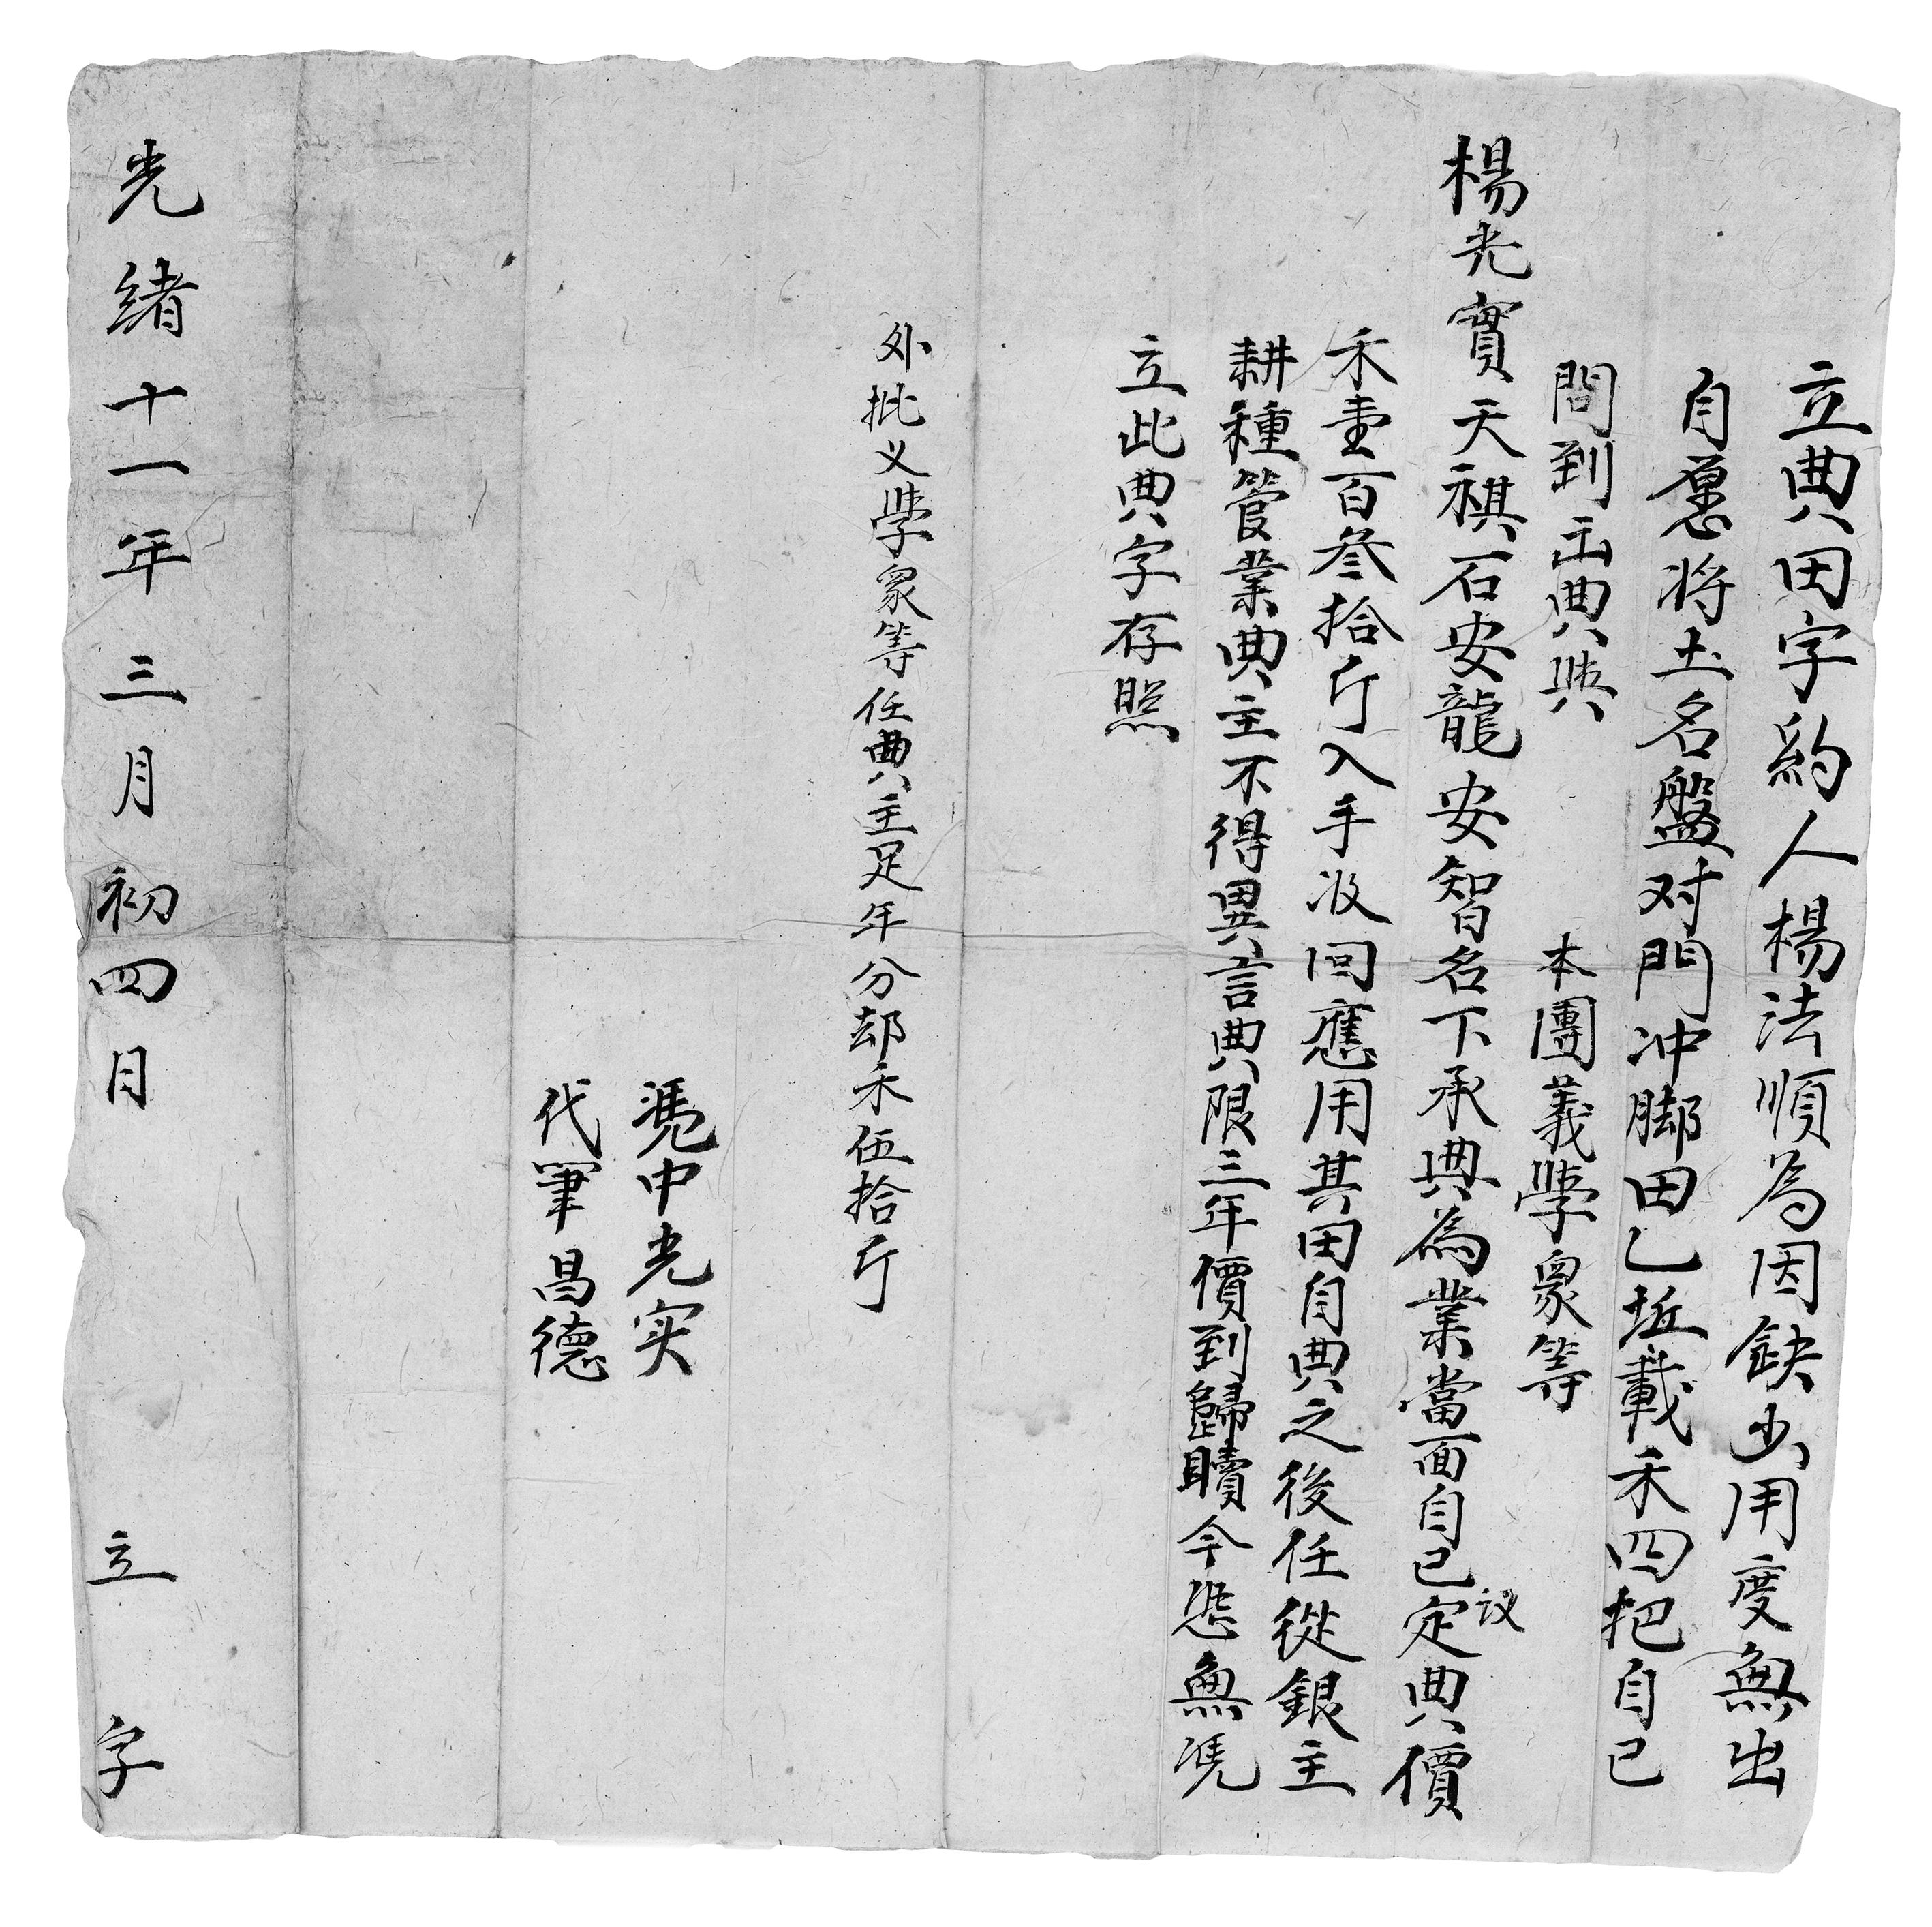 立典田字約人楊法順為因缺少用度無出
自愿将土名盤对門冲脚田乙坵載禾四把自己
問到出典與　本團義學衆等
楊光實天祺石安龍安智名下承典為業當面自己议定典價
禾壹百叁拾斤入手收回應用其田自典之後任從銀主
耕種管業典主不得異言典限三年價到歸贖今恐無憑
立此典字存照
外批义學衆等任典主足年分却禾伍拾斤
憑中光实
代筆昌德
光緒十一年三月初四日　立字